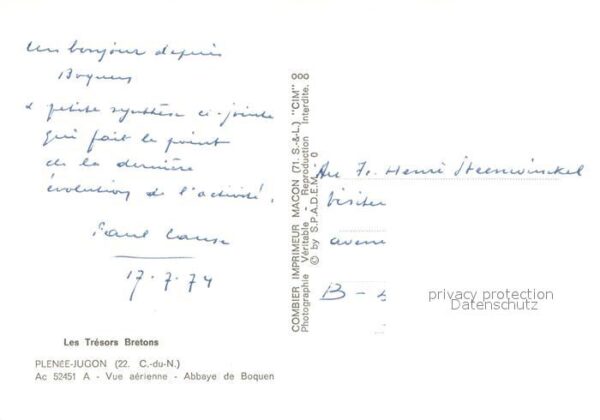 Un bonjour depuis
Boquen
& petite synthèse ci-jointe
qui fait le point
de la dernière
évolution de l'activité.
Paul
17.7.74
Les Trésors Bretons
PLENÉE-JUGON (22. C.-du-N.)
Ac 52451 A - Vue aérienne - Abbaye de Boquen
COMBIER IMPRIMEUR MACON (71. S.-&-L.) "CIM"
Photographie Véritable - Reproduction Interdite.
© by S.P.A.D.E.M. 0
Au Fr. Henri Steenwinckel
Visiteu
avenue
B -
privacy protection
Datenschutz